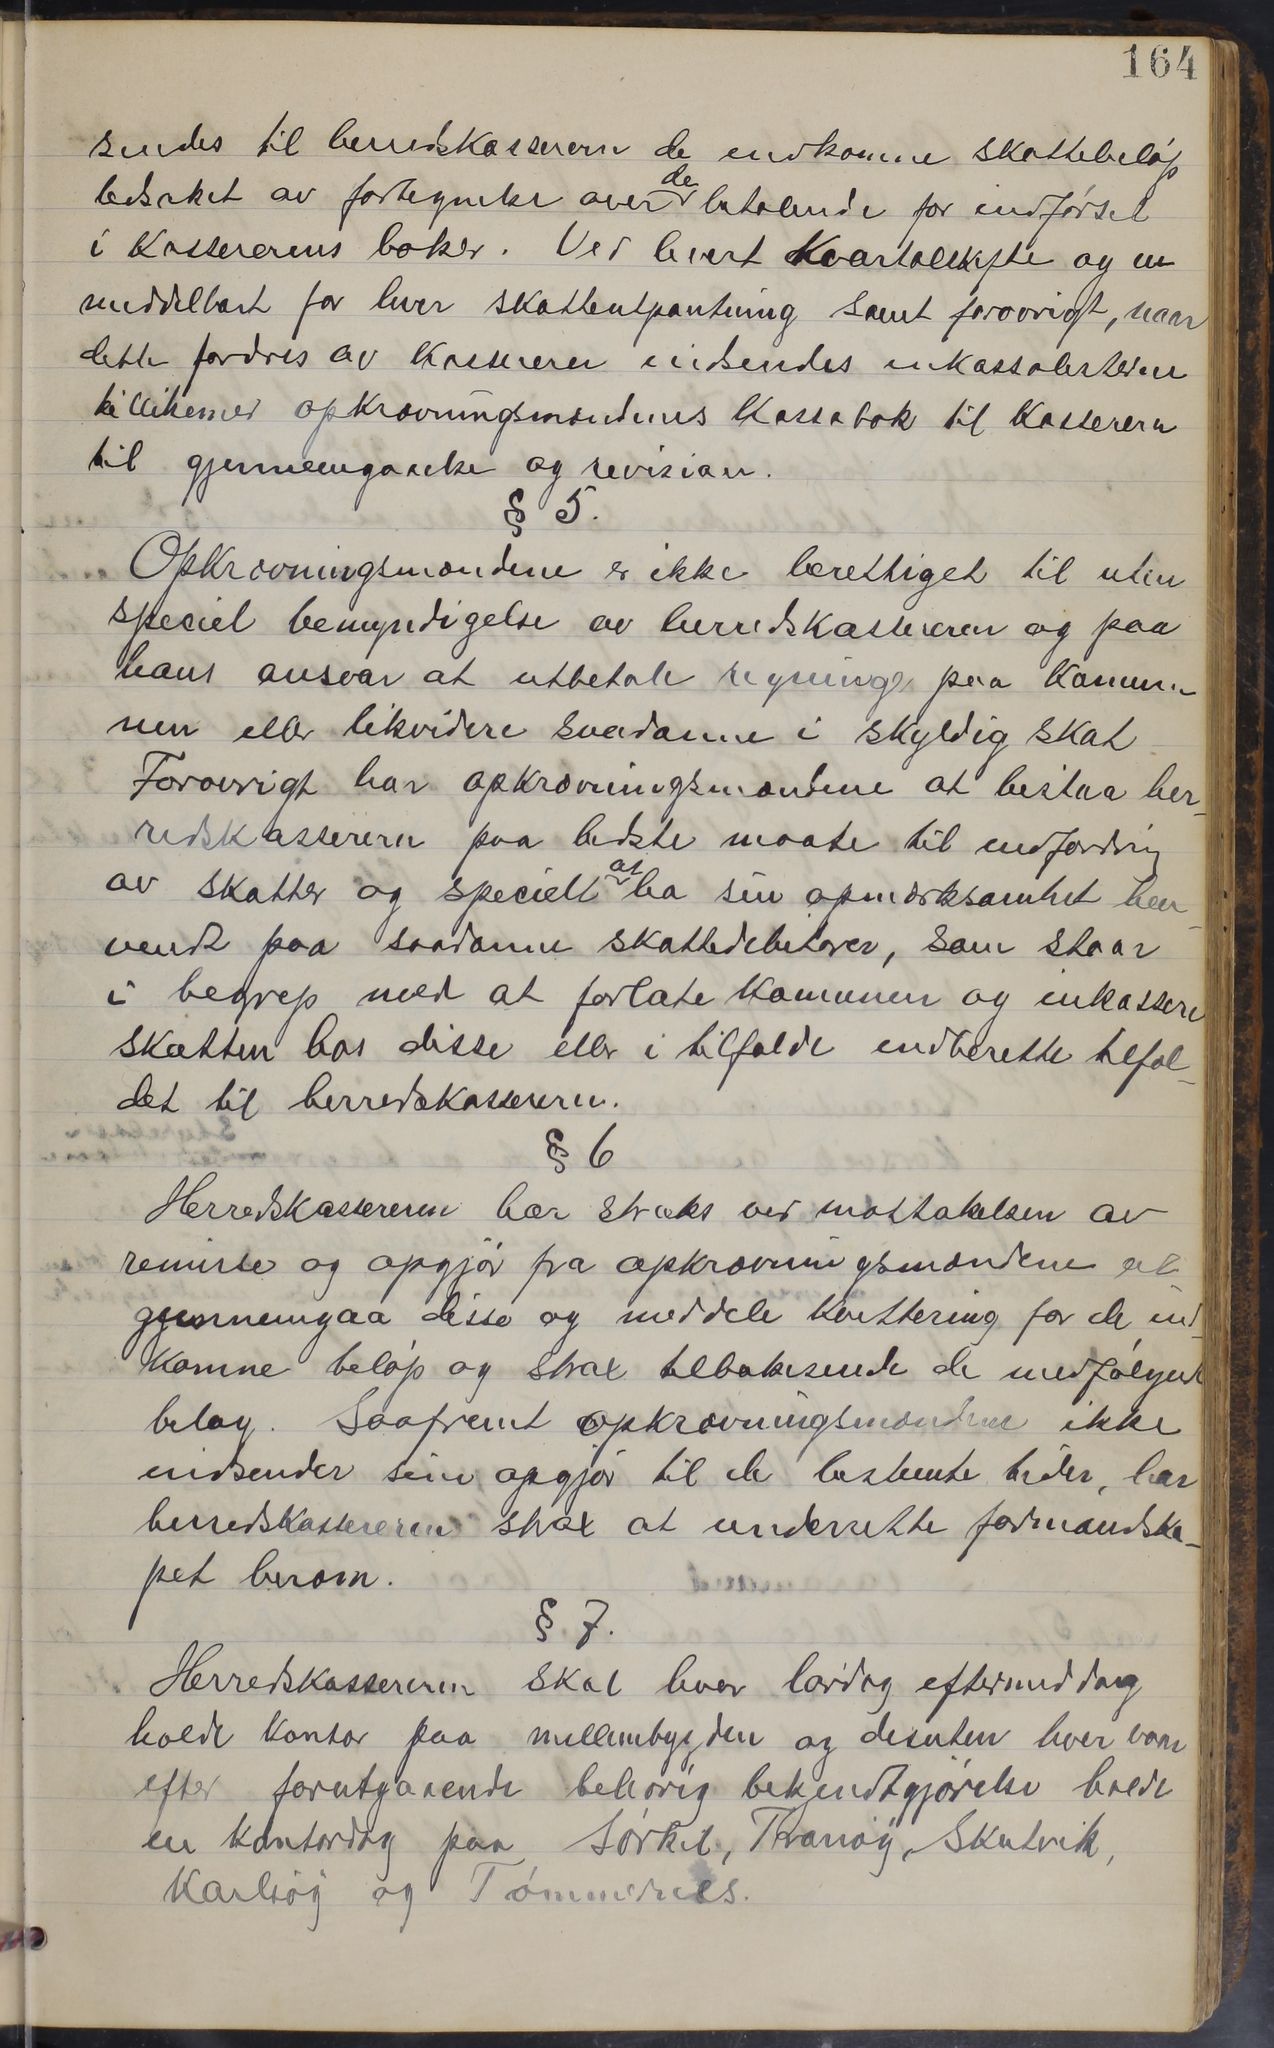 164
sendes til herredskassereren de indkomne skattebeløp
ledsaket av fortegnelse over de betalende for indførsel
i kassererens bøker. Ved hvert kvartalskifte og u
middelbart før hver skatteutpantning samt forøvrigt, naar
dette fordres av kassereren indsendes inkassolisterne
tillikemed opkrævningsmændenes kassabok til kassereren
til gjennemgaaelse og revision.
§ 5.
Opkrævningsmændene er ikke berettiget til uten
speciel bemyndigelse av herredskassereren og paa
hans ansvar at utbetale regninger paa kommu
nen eller likvidere saadanne i skyldig skat
Forøvrigt har opkrævningsmændene at bistaa her-
redskassereren paa bedste maate til indfordring
av skatter og specielt at ha sin opmærksomhet hen-
vendt paa saadanne skattedebitorer, som staar
i begrep med at forlate kommunen og inkassere
skatten hos disse eller i tilfælde indberette tilfæl-
det til herredskassereren.
§ 6
Herredskassereren har straks ved mottakelsen av
remisse og opgjör fra opkrævningsmændene at
gjennemgaa disse og meddele kvittering for de ind-
komne beløp og strax tilbakesende de medfølgende
belag. Saafremt opkrævningsmændene ikke
indsender sine opgjör til de bestemte tider, har
herredskassereren strax at underrette formandska-
pet herom.
§ 7.
Herredskassereren skal hver lørdag eftermiddag
holde kontor paa mellembygden og desuten hver vaar
efter forutgaaende behørig bekjendtgjørelse holde
en kontordag paa Sørkil, Tranøy, Skutvik,
Karlsøy og Tømmernes.